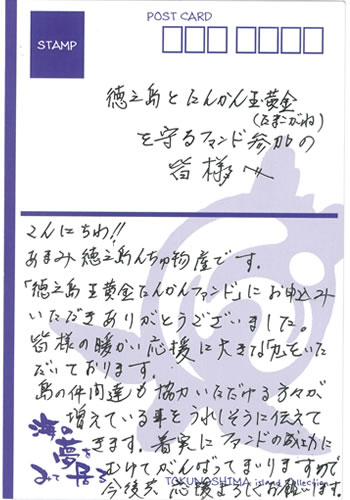 POST CARD
STAMP
徳之島とたんかん玉黄金
(たまこがね)
を守るファンド参加の
皆様へ
こんにちわ!!
あまみ徳之島んちゅ物産です。
「徳之島玉黄金たんかんファンド」にお申込み
いただきありがとうございました。
皆様の暖かい応援に大きな「力」をいた
だいております。
島の仲間達も協力いただける方々が
増えている事をうれしそうに伝えて
きます。着実にファンドの成立に
むけてがんばってまいりますので
今後共、応援よろしくお願いします。
海の
夢を
みて居る
TOKUNOSHIMA island Collection